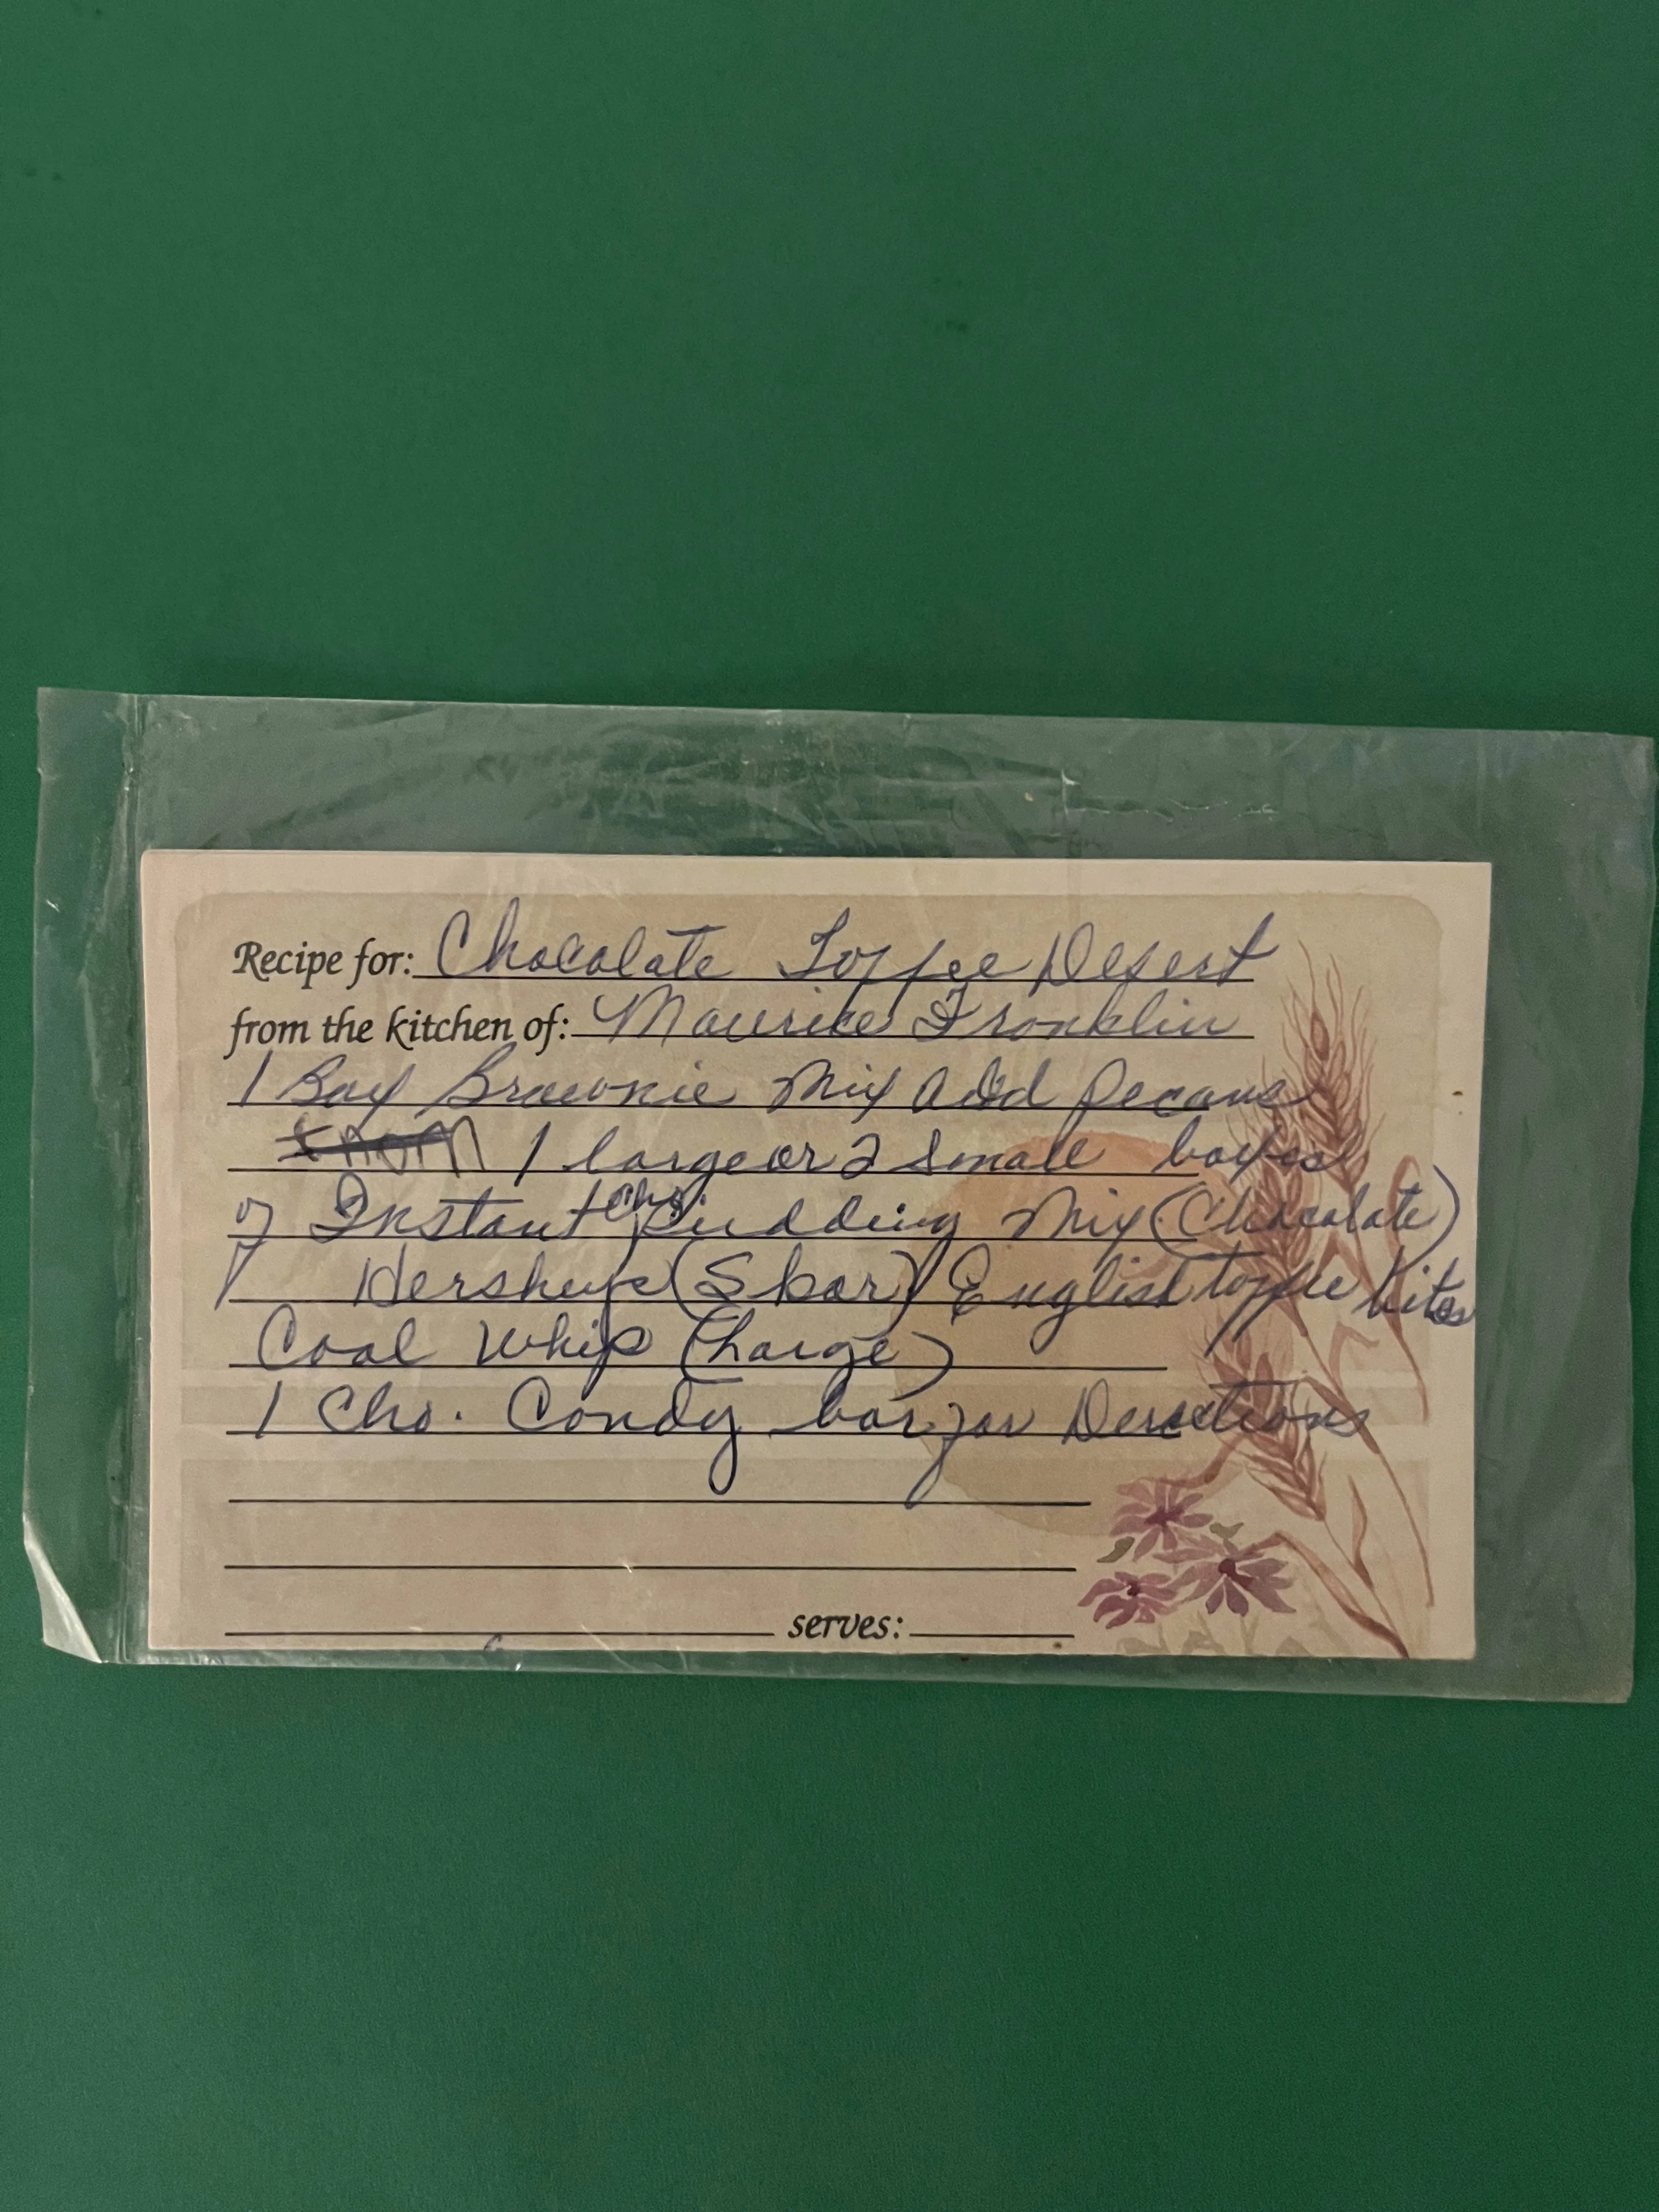 Recipe for: Chocolate Toffee Desert
from the kitchen of: Maurice Franklin
1 Box Brownie Mix Add Pecans
1 large or 2 small boxes
of Instant Cho. Pudding Mix (Chocolate)
Hersheys (Skor) English toffee bites
Cool Whip (Large)
1 Cho. Candy bar for Derections
serves: